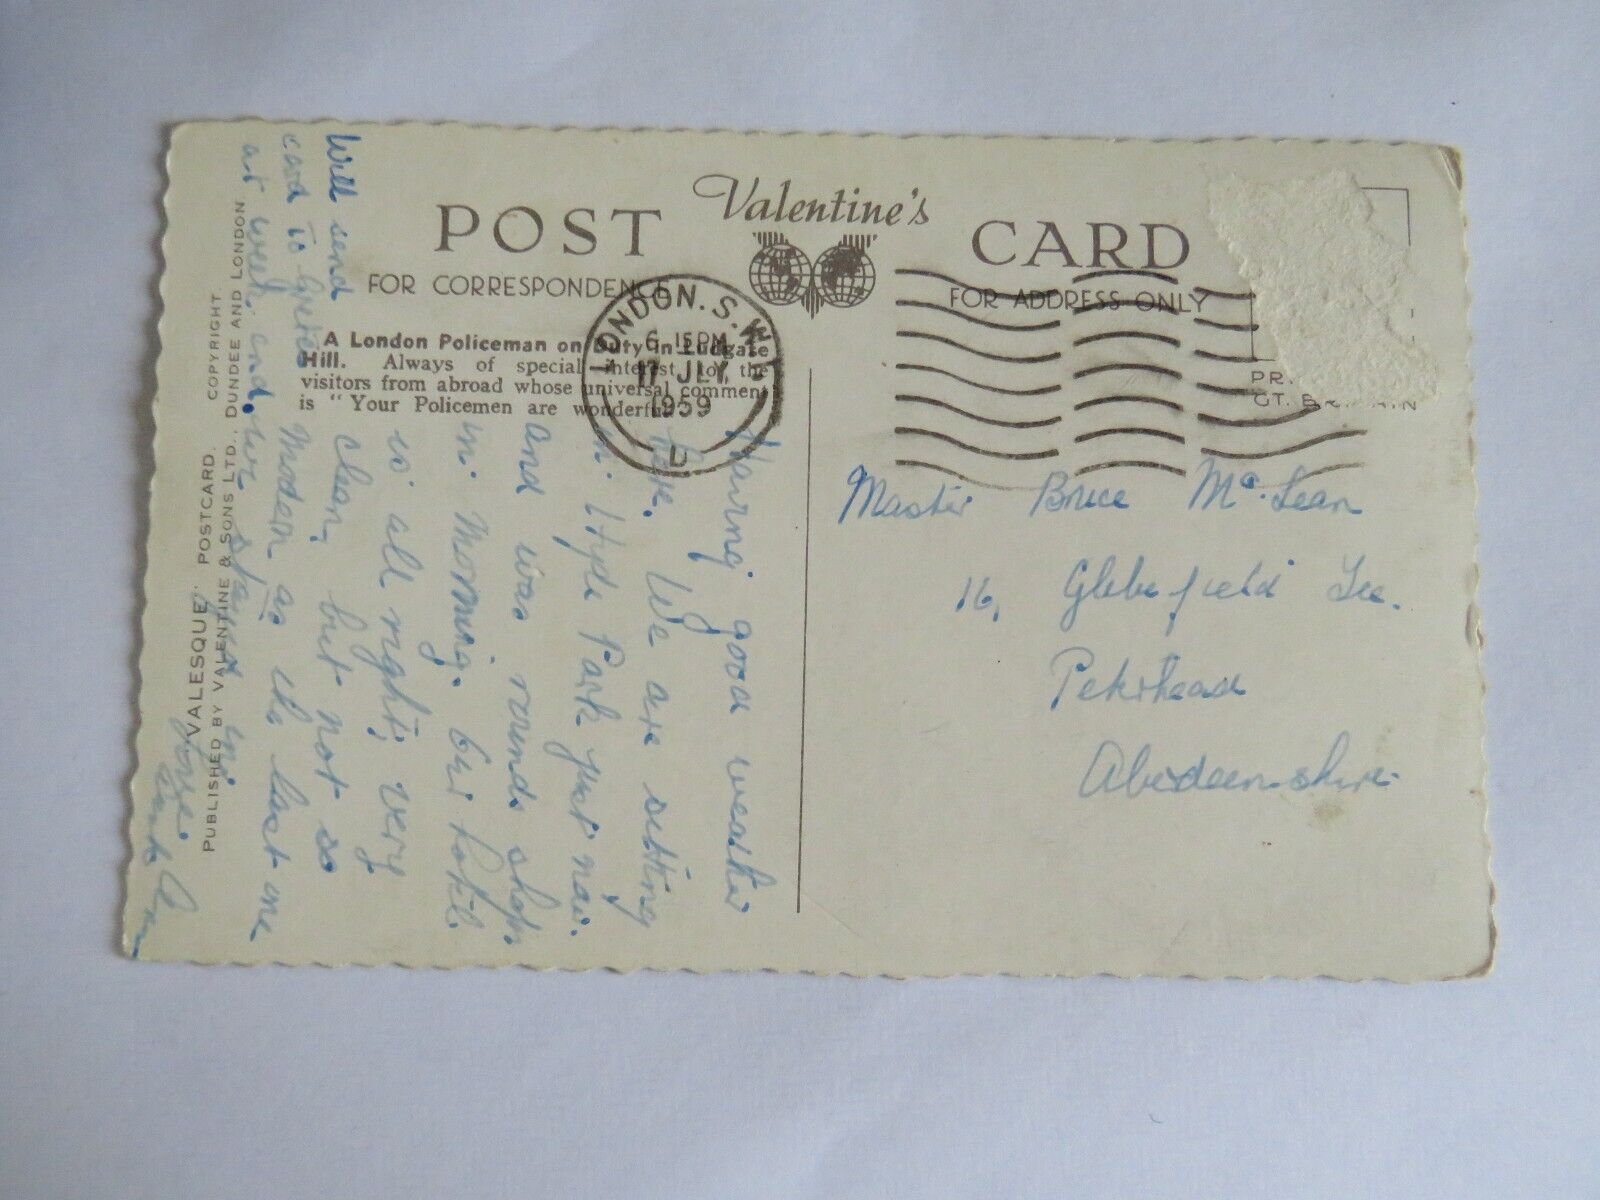 POST Valentine's CARD
FOR CORRESPONDENCE
FOR ADDRESS ONLY
A London Policeman on Duty in Ludgate
Hill. Always of special interest to the
visitors from abroad whose universal comment
is "Your Policemen are wonderful"
LONDON. S.W.1
6 15PM
17 JLY
1959
D
GT. BRITAIN
Master Bruce Mc.Lean
16, Glebefield Tce.
Peterhead
Aberdeenshire.
Having good weather
here. We are sitting
in Hyde Park just now.
and was round shops
in Morning. Our hotel
is all right, very
clean, but not so
Modern as the last one
our
Love.
Aunt Ann
Will send
card to
at week-end.
VALESQUE POSTCARD. COPYRIGHT.
PUBLISHED BY VALENTINE & SONS LTD., DUNDEE AND LONDON